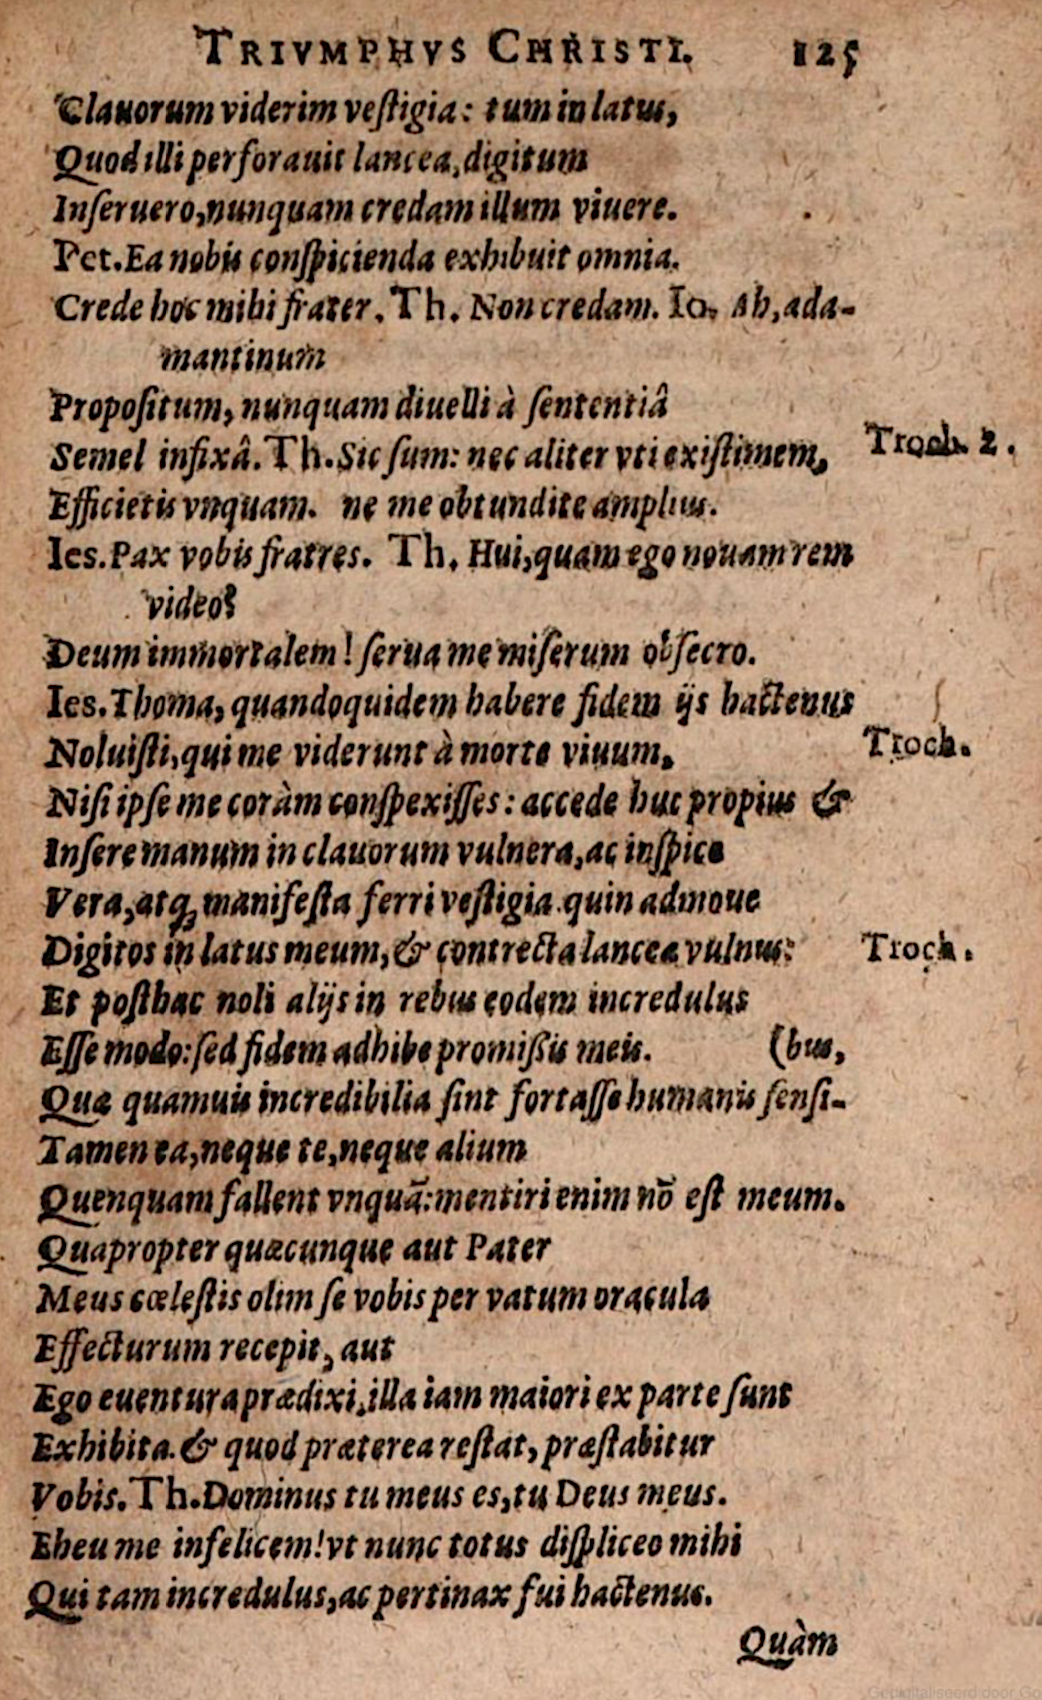 TRIVMPHVS CHRISTI. 125
Clauorum viderim veſtigia: tum in latus,
Quod illi perforauit lancea, digitum
Inſeruero, nunquam credam illum viuere.
Pet. Ea nobis conſpicienda exhibuit omnia.
Crede hoc mihi frater. Th. Non credam. Io. Ah, ada-
mantinum
Propoſitum, nunquam diuelli à ſententiâ
Semel infixâ. Th. Sic ſum: nec aliter vti exiſtimem, Troch. 2.
Efficietis vnquam. ne me obtundite amplius.
Ies. Pax vobis fratres. Th. Hui, quam ego nouam rem
video?
Deum immortalem! ſerua me miſerum obſecro.
Ies. Thoma, quandoquidem habere fidem ijs hactenus
Noluiſti, qui me viderunt à morte viuum, Troch.
Niſi ipſe me coràm conſpexiſſes: accede huc propius &
Inſere manum in clauorum vulnera, ac inſpice
Vera, atq; manifeſta ferri veſtigia. quin admoue
Digitos in latus meum, & contrecta lanceæ vulnus: Troch.
Et poſthac noli alijs in rebus eodem incredulus
Eſſe modo: ſed fidem adhibe promißis meis. (bus,
Quæ quamuis incredibilia ſint fortaſſe humanis ſenſi-
Tamen ea, neque te, neque alium
Quenquam fallent vnquã: mentiri enim nõ eſt meum.
Quapropter quæcunque aut Pater
Meus cœleſtis olim ſe vobis per vatum oracula
Effecturum recepit, aut
Ego euentura prædixi, illa iam maiori ex parte ſunt
Exhibita. & quod præterea reſtat, præſtabitur
Vobis. Th. Dominus tu meus es, tu Deus meus.
Eheu me infelicem! vt nunc totus diſpliceo mihi
Qui tam incredulus, ac pertinax fui hactenus.
Quàm